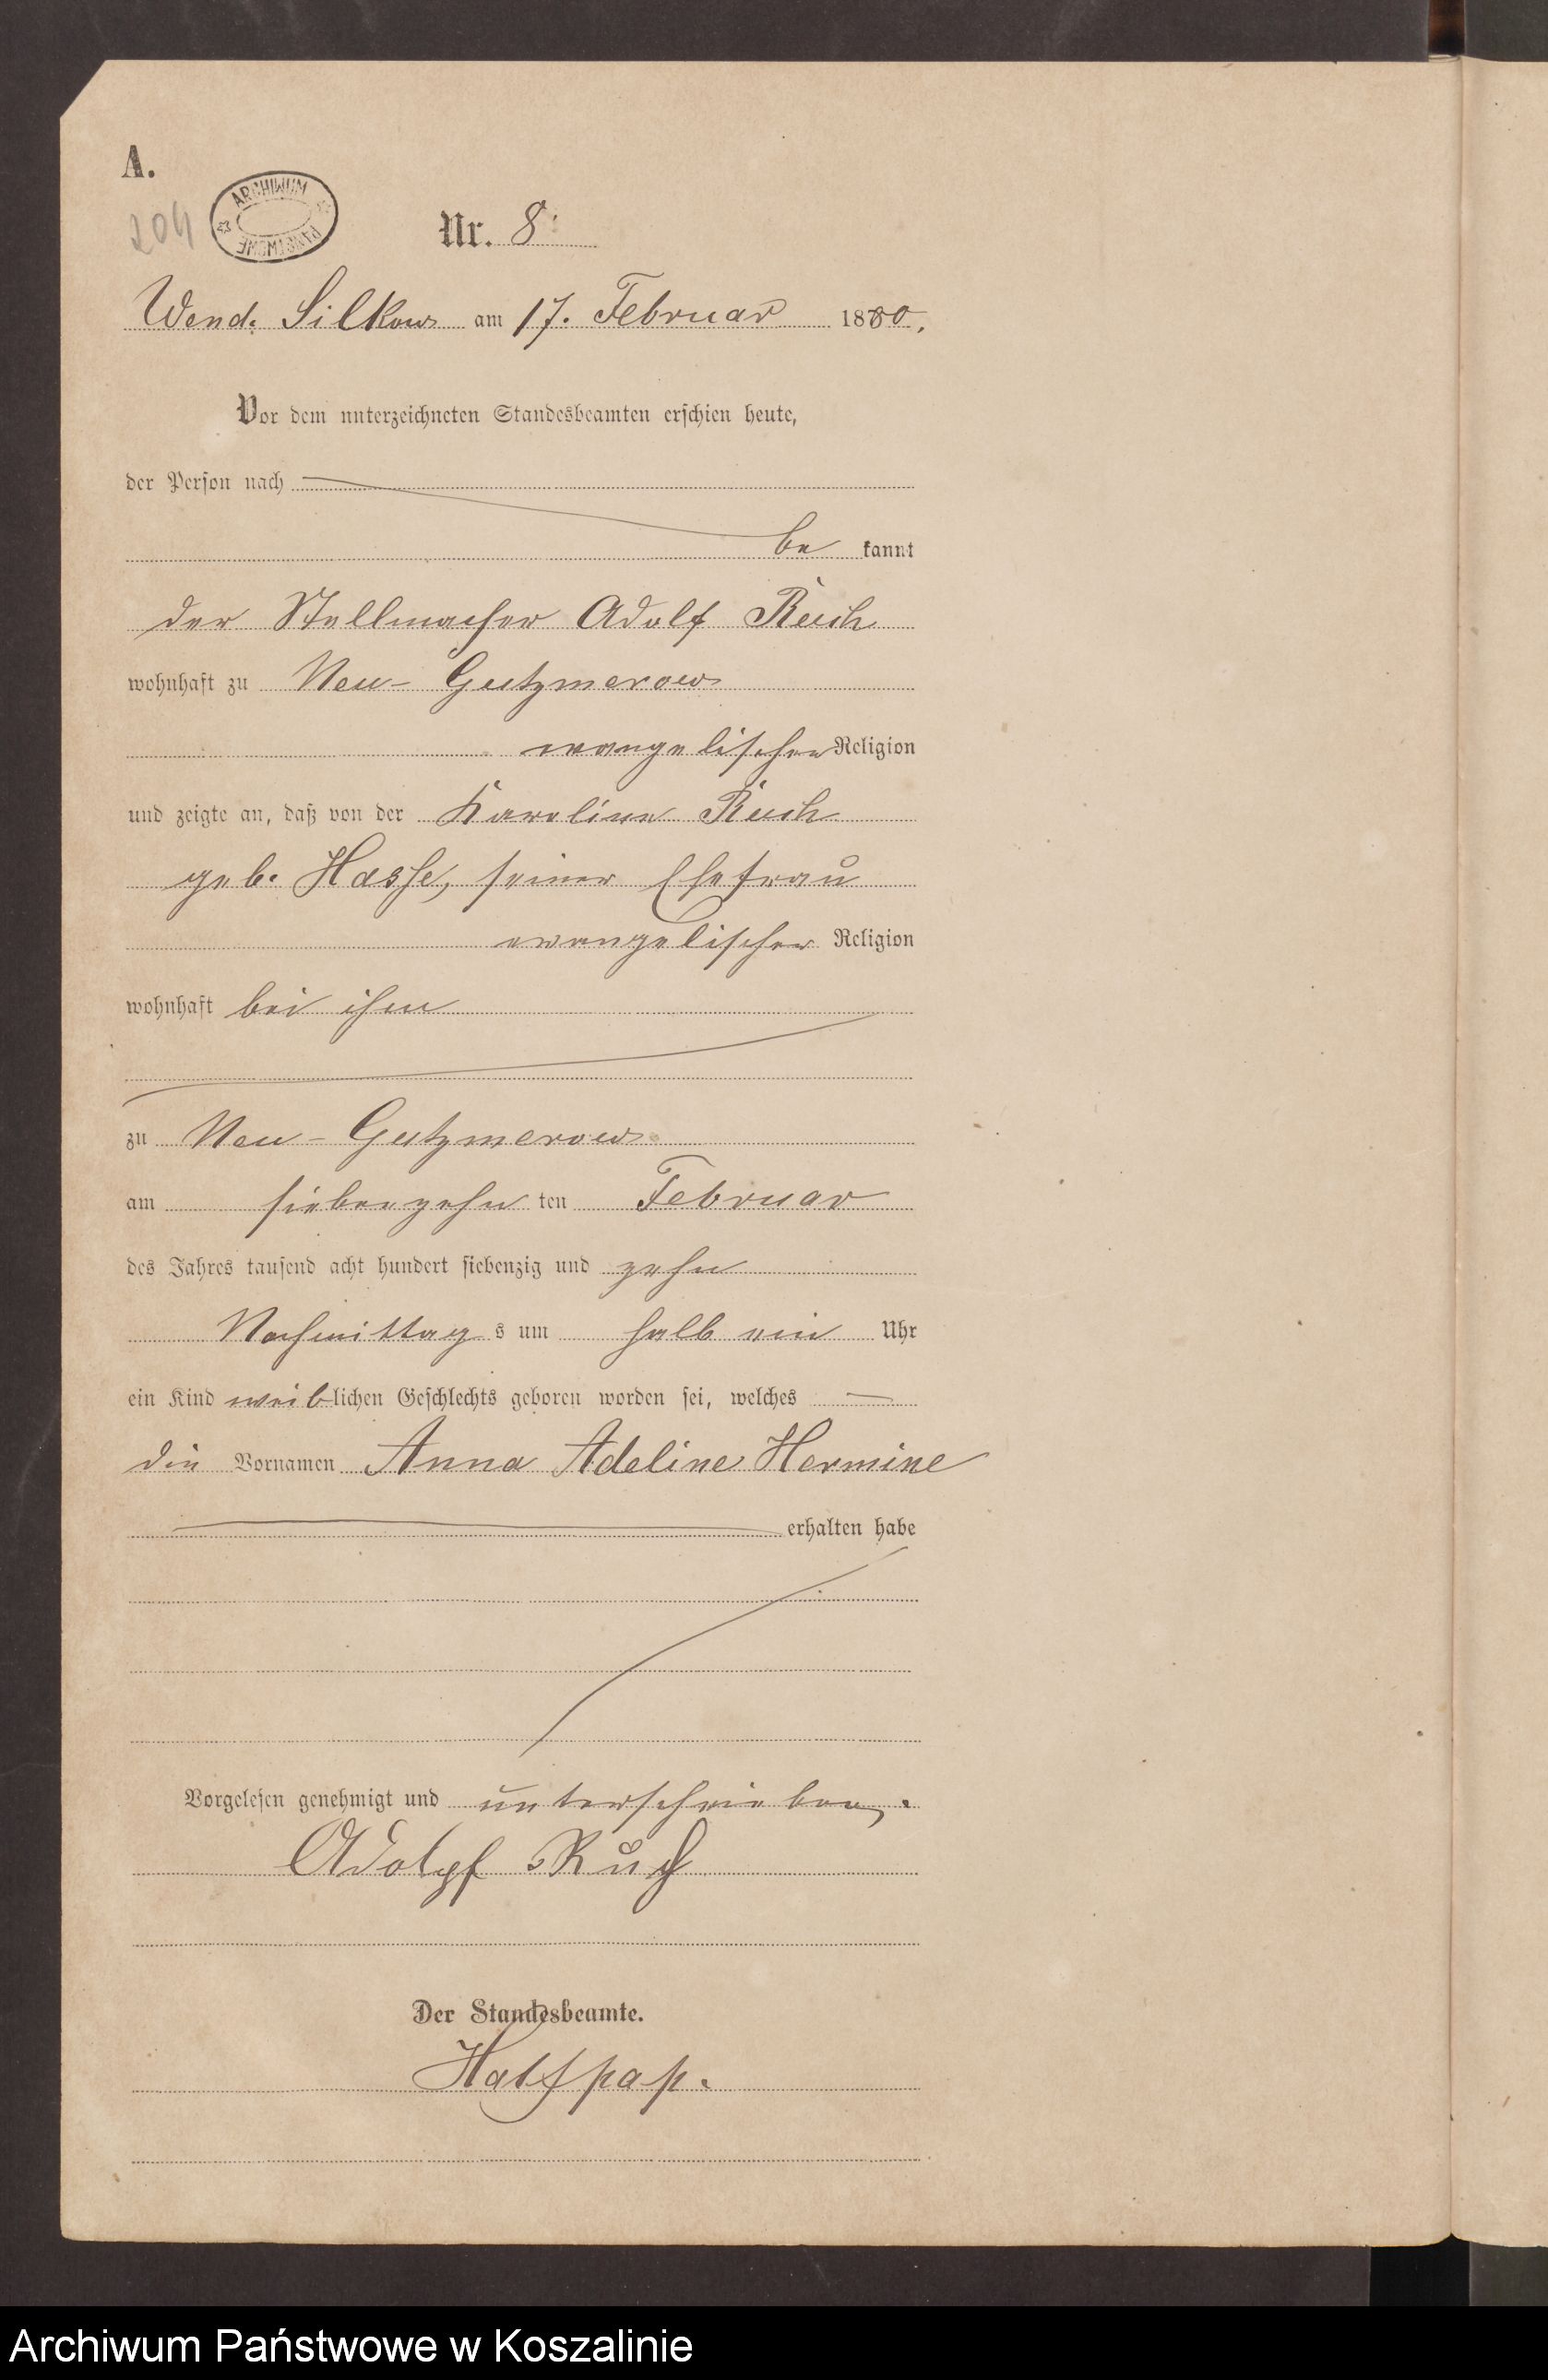 A.
204
ARCHIWUM PAŃSTWOWE
Nr. 8.
Wend. Silkow am 17. Februar 1880.
Vor dem unterzeichneten Standesbeamten erschien heute,
der Person nach
be kannt
der Stellmacher Adolf Ruch
wohnhaft zu Neu-Gutzmerow
evangelischer Religion
und zeigte an, daß von der Karoline Ruch
geb. Hasse, seiner Ehefrau
evangelischer Religion
wohnhaft bei ihm
zu Neu-Gutzmerow
am siebenzehn ten Februar
des Jahres tausend acht hundert siebenzig und zehn
Nachmittag s um halb ein Uhr
ein Kind weiblichen Geschlechts geboren worden sei, welches
die Vornamen Anna Adeline Hermine
erhalten habe
Vorgelesen genehmigt und unterschrieben.
Adolpf Ruch
Der Standesbeamte.
Halfpap.
Archiwum Państwowe w Koszalinie